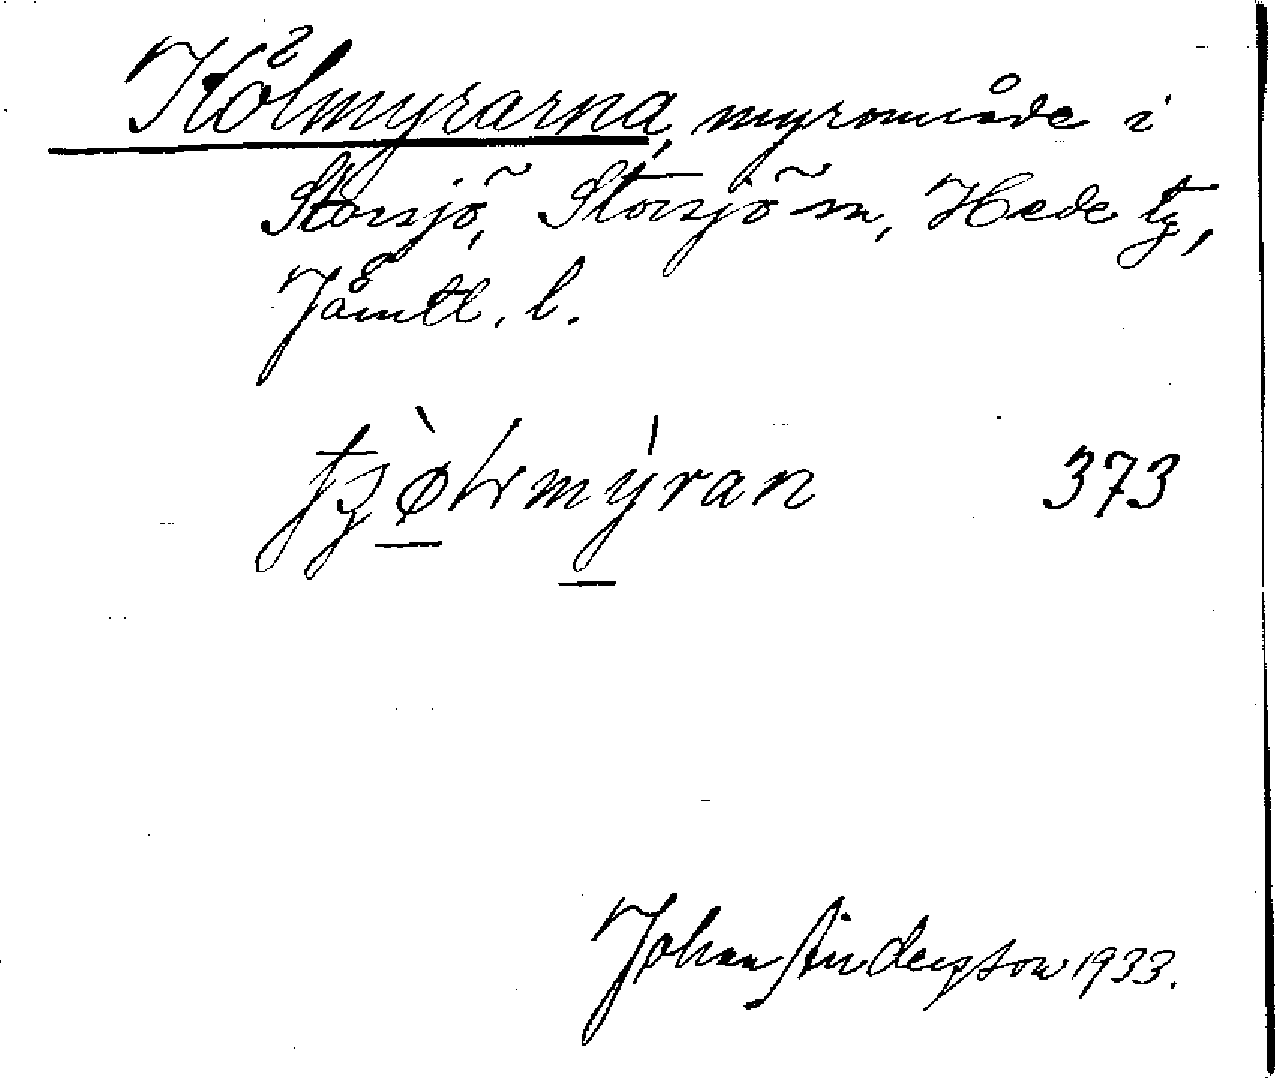 Kölmyrarna, myrområde i
Storsjö, Storsjö sn, Hede tg,
Jämtl. l.
373
Johan Anderzson 1933.